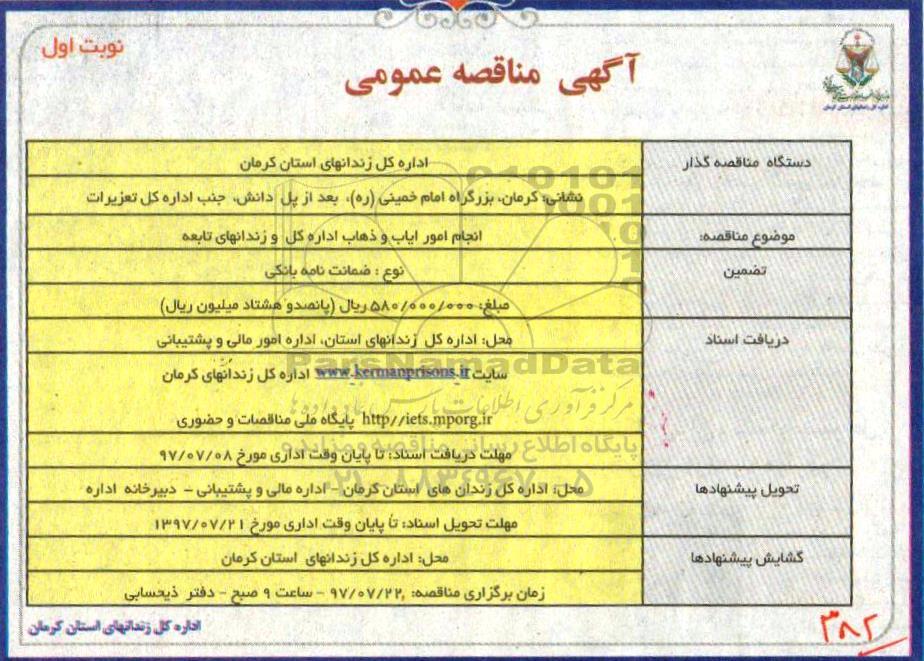 نوبت اول
آگهی مناقصه عمومی
اداره کل زندانهای استان کرمان
دستگاه مناقصه گذار
اداره کل زندانهای استان کرمان
نشانی: کرمان، بزرگراه امام خمینی (ره)، بعد از پل دانش، جنب اداره کل تعزیرات
موضوع مناقصه:
انجام امور ایاب و ذهاب اداره کل و زندانهای تابعه
تضمین
نوع : ضمانت نامه بانکی
مبلغ: ۵۸۰/۰۰۰/۰۰۰ ریال (پانصدو هشتاد میلیون ریال)
دریافت اسناد
محل: اداره کل زندانهای استان، اداره امور مالی و پشتیبانی
سایت www.kermanprisons.ir اداره کل زندانهای کرمان
http//iets.mporg.ir پایگاه ملی مناقصات و حضوری
مهلت دریافت اسناد: تا پایان وقت اداری مورخ ۹۷/۰۷/۰۸
تحویل پیشنهادها
محل: اداره کل زندان های استان کرمان - اداره مالی و پشتیبانی - دبیرخانه اداره
مهلت تحویل اسناد: تا پایان وقت اداری مورخ ۱۳۹۷/۰۷/۲۱
گشایش پیشنهادها
محل: اداره کل زندانهای استان کرمان
زمان برگزاری مناقصه: ۹۷/۰۷/۲۲ - ساعت ۹ صبح - دفتر ذیحسابی
اداره کل زندانهای استان کرمان
۳۸۲
ParsNamadData
مرکز فرآوری اطلاعات پارس نماد داده ها
پایگاه اطلاع رسانی مناقصه و مزایده
۰۲۱-۸۸۳۴۹۶۷۰-۵